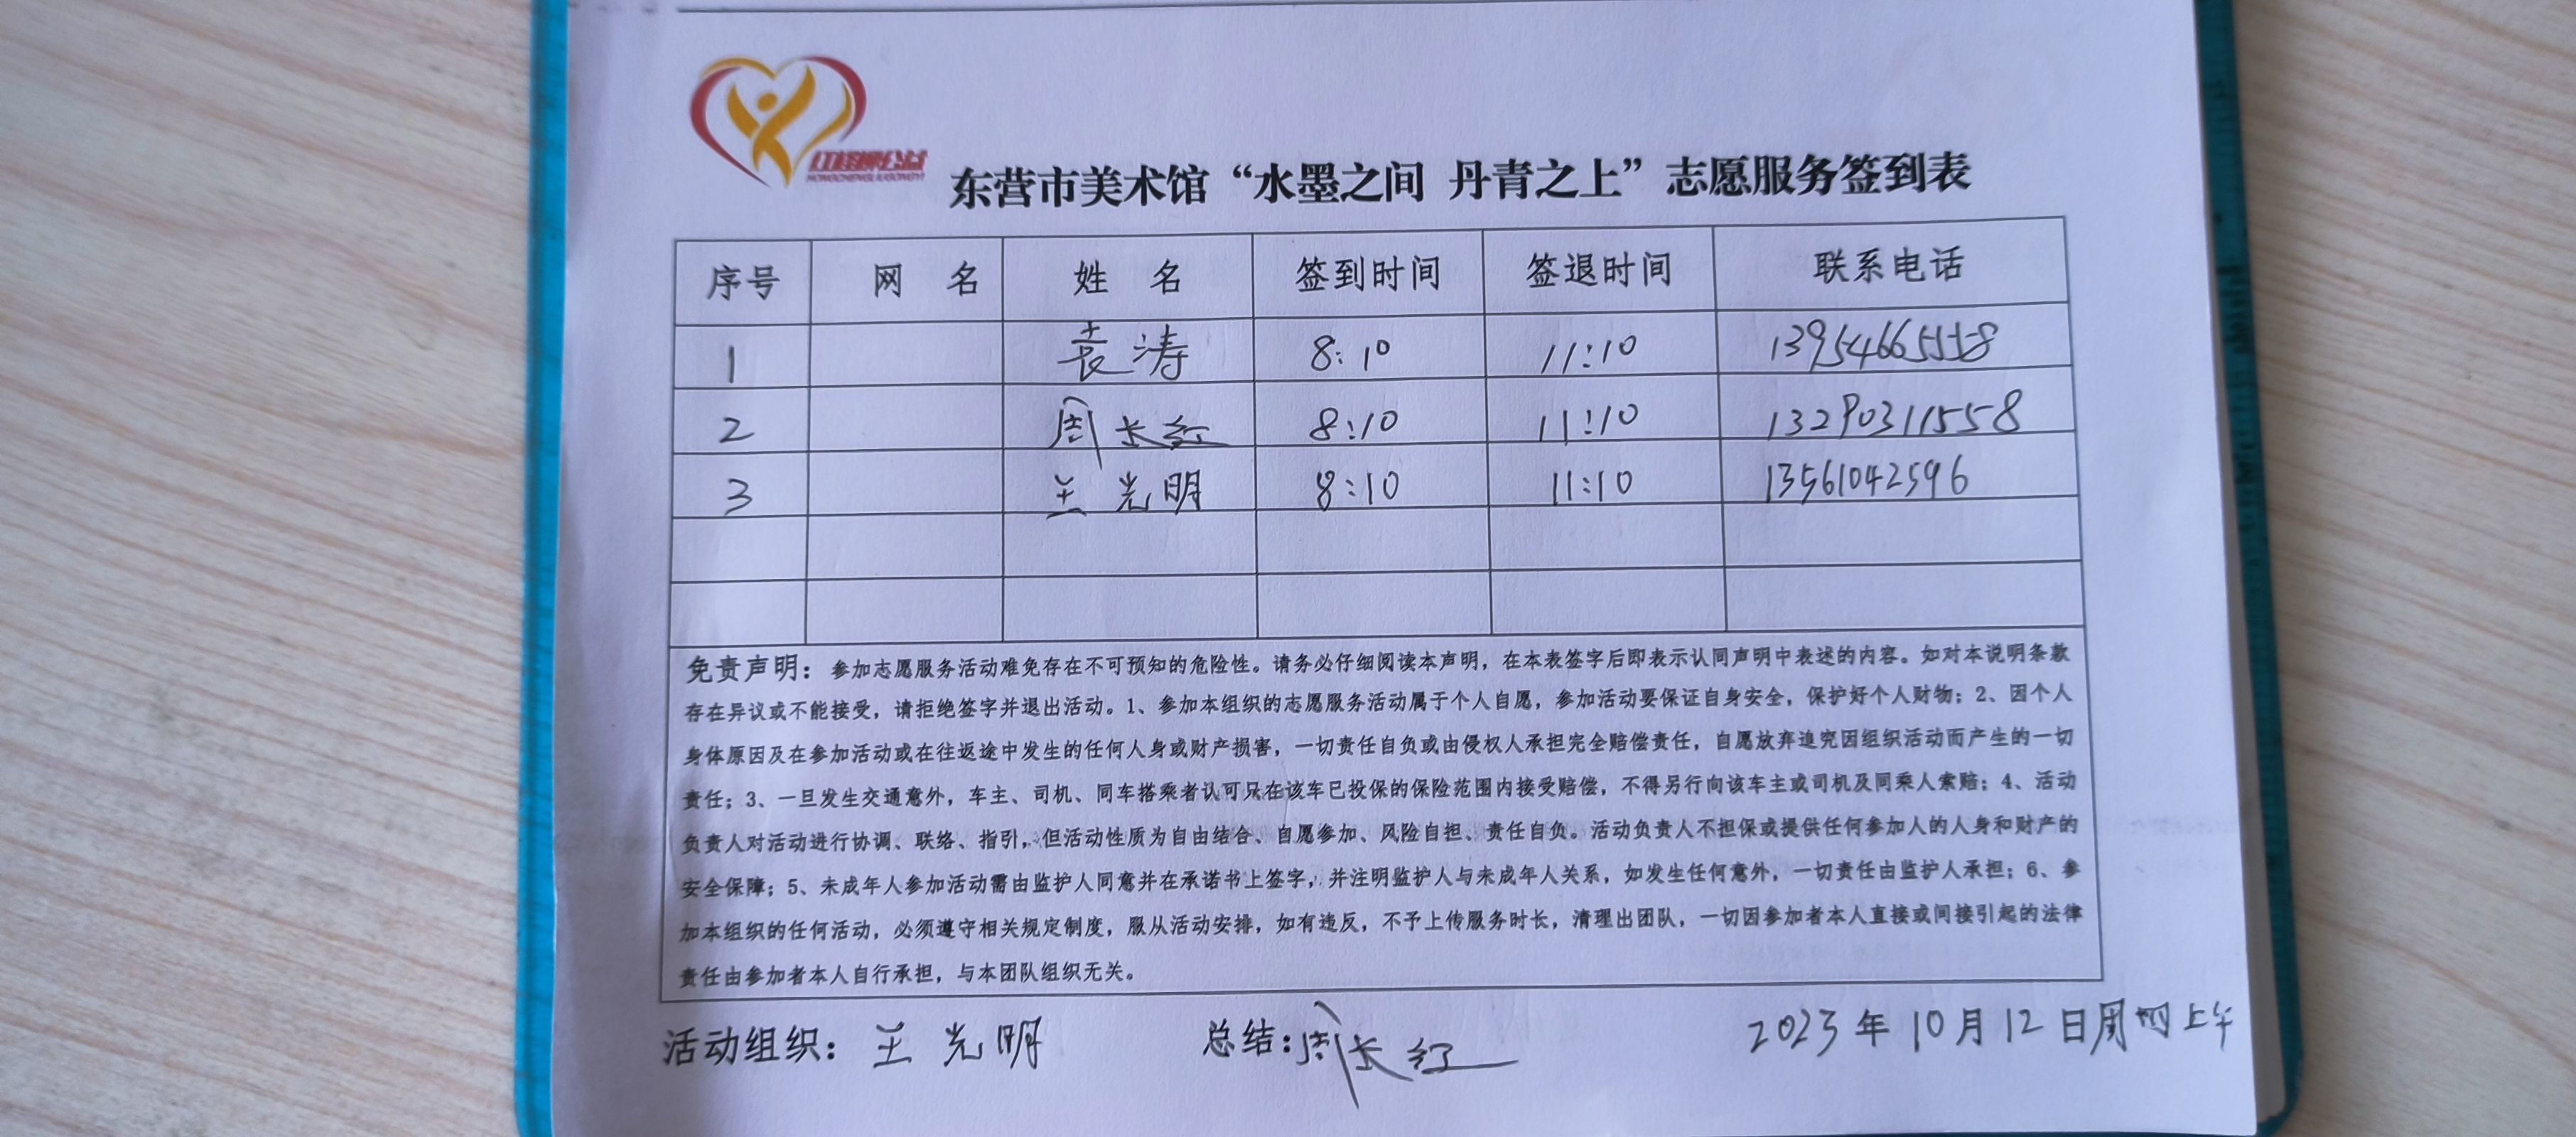 红橙柳公益
HONGCHENGLIUGONGYI
东营市美术馆“水墨之间 丹青之上”志愿服务签到表
序号 网 名 姓 名 签到时间 签退时间 联系电话
1 袁涛 8:10 11:10 13954665558
2 周长红 8:10 11:10 13290311558
3 王光明 8:10 11:10 13561042596
免责声明：参加志愿服务活动难免存在不可预知的危险性。请务必仔细阅读本声明，在本表签字后即表示认同声明中表述的内容。如对本说明条款
存在异议或不能接受，请拒绝签字并退出活动。1、参加本组织的志愿服务活动属于个人自愿，参加活动要保证自身安全，保护好个人财物；2、因个人
身体原因及在参加活动或在往返途中发生的任何人身或财产损害，一切责任自负或由侵权人承担完全赔偿责任，自愿放弃追究因组织活动而产生的一切
责任；3、一旦发生交通意外，车主、司机、同车搭乘者认可只在该车已投保的保险范围内接受赔偿，不得另行向该车主或司机及同乘人索赔；4、活动
负责人对活动进行协调、联络、指引，但活动性质为自由结合、自愿参加、风险自担、责任自负。活动负责人不担保或提供任何参加人的人身和财产的
安全保障；5、未成年人参加活动需由监护人同意并在承诺书上签字，并注明监护人与未成年人关系，如发生任何意外，一切责任由监护人承担；6、参
加本组织的任何活动，必须遵守相关规定制度，服从活动安排，如有违反，不予上传服务时长，清理出团队，一切因参加者本人直接或间接引起的法律
责任由参加者本人自行承担，与本团队组织无关。
活动组织：王光明 总结：周长红 2023年10月12日周四上午